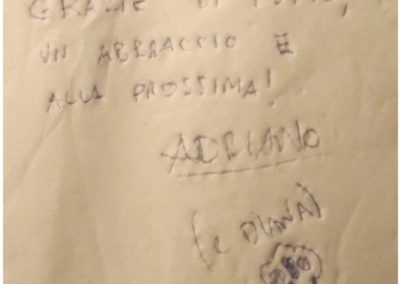 GRAZIE DI TUTTO,
UN ABBRACCIO E
ALLA PROSSIMA!
ADRIANO
(e DIANA)